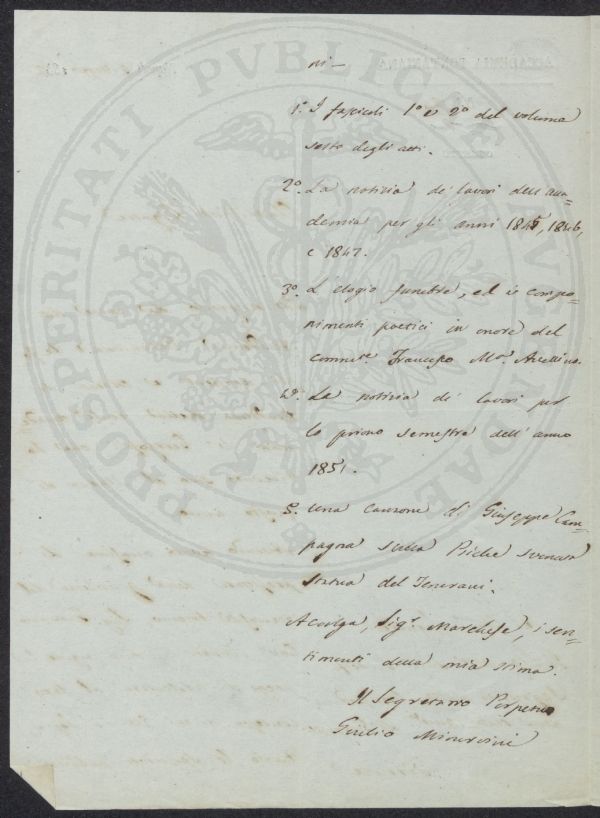 PROSPERITATI PVBLICAE AVGENDAE
ACCADEMIA PONTANIANA
ni —
1.° I fascicoli 1° e 2° del volume
sesto degli atti.
2°. La notizia de' lavori dell'acca=
demia per gli anni 1845, 1846,
e 1847.
3°. L'elogio funebre, ed i compo=
nimenti poetici in onore del
comm.re Francesco M.a Avellino.
4°. La notizia de' lavori per
lo primo semestre dell'anno
1851.
5. Una canzone di Giuseppe Cam=
pagna sulla Psiche svenuta
statua del Tenerani.
Accolga, Sig.r Marchese, i sen=
timenti della mia stima.
Il Segretario Perpetuo
Giulio Minervini